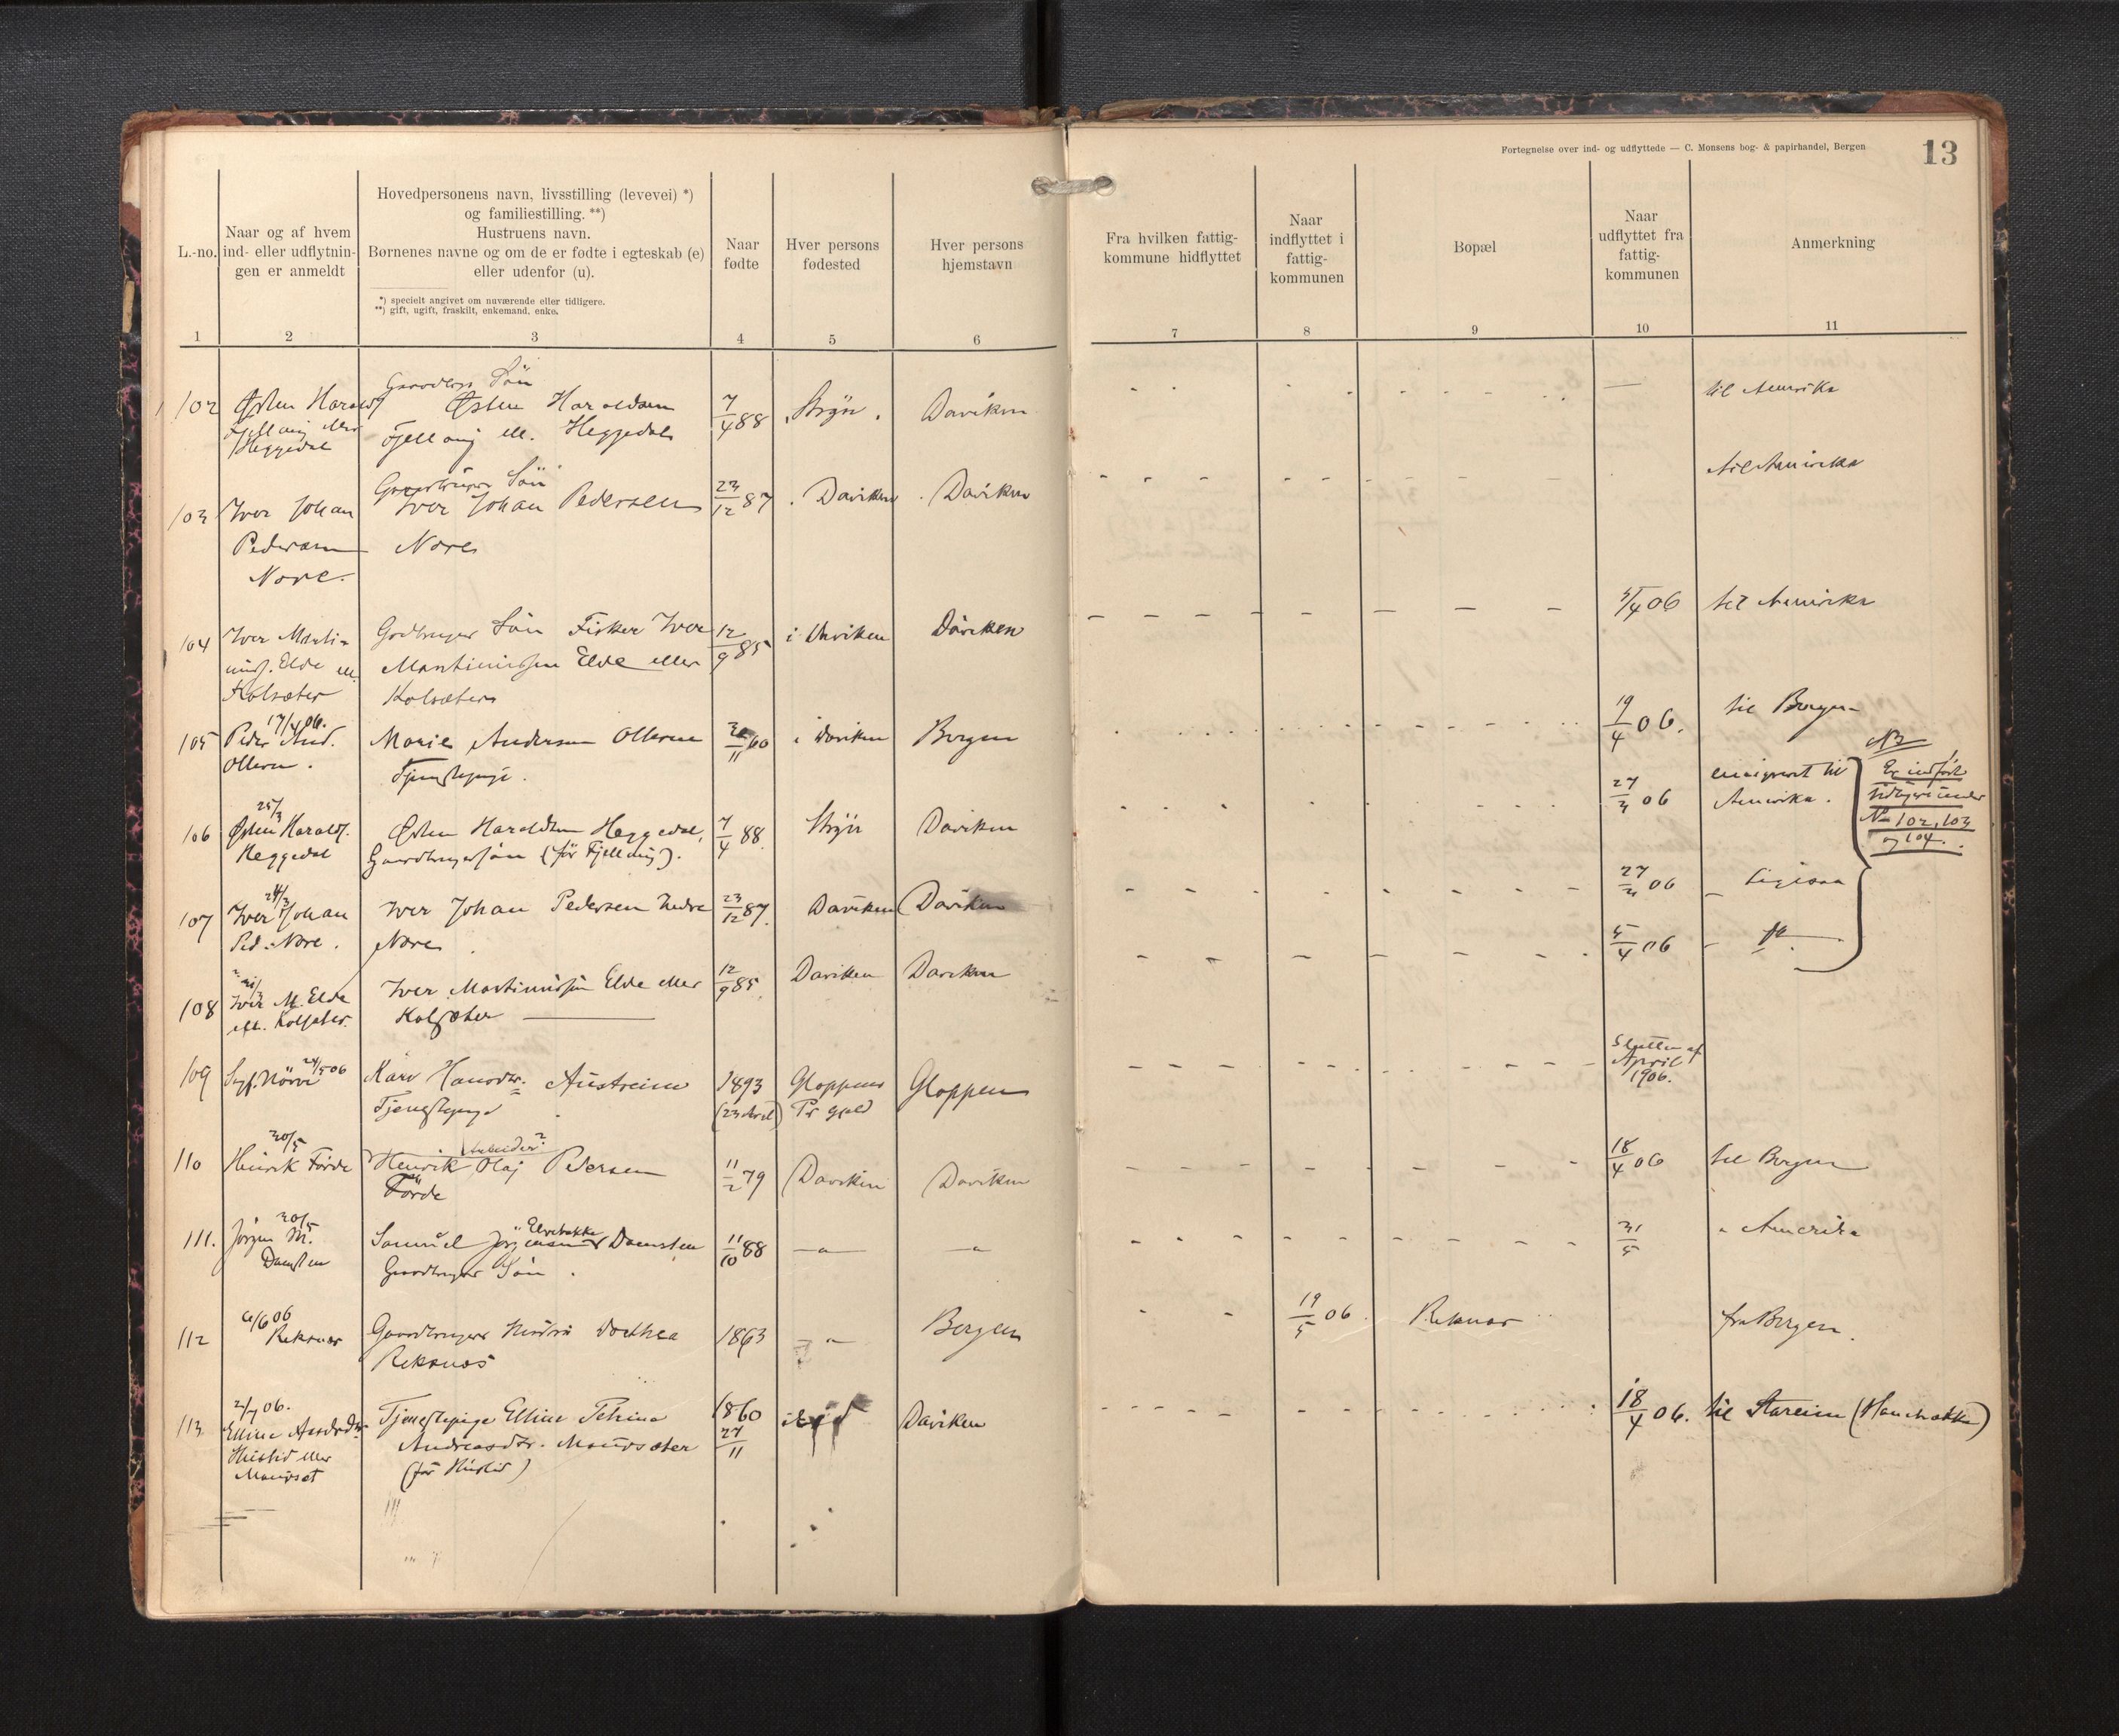 Fortegnelse over ind- og udflyttede — C. Monsens bog- & papirhandel, Bergen
13
L.-no.
Naar og af hvem
ind- eller udflytnin-
gen er anmeldt
Hovedpersonens navn, livsstilling (levevei) *)
og familiestilling. **)
Hustruens navn.
Børnenes navne og om de er fødte i egteskab (e)
eller udenfor (u).
*) specielt angivet om nuværende eller tidligere.
**) gift, ugift, fraskilt, enkemand, enke.
Naar
fødte
Hver persons
fødested
Hver persons
hjemstavn
Fra hvilken fattig-
kommune hidflyttet
Naar
indflyttet i
fattig-
kommunen
Bopæl
Naar
udflyttet fra
fattig-
kommunen
Anmerkning
1 2 3 4 5 6 7 8 9 10 11
102 Østen Haralds
Fjelling eller
Heggedal
Søn
Østen Haraldsen
Heggedal
7/4 88
Stryn
Daviken
til Amerika
103 Iver Johan
Pedersen
Nore.
Søn
Iver Johan Pedersen
Nore
23/12 87
Daviken
Daviken
til Amerika
104 Iver Marti-
Elde ell.
Kolsæter
Søn Fisker Iver
Martinussen Elde eller
Kolsæter
12/9 85
i Daviken
Daviken
5/4 06
til Amerika
105 17/4 06.
Peder And.
Ollern.
Marie Andersen Olleren
60
i Daviken
Bergen
19/4 06.
til Bergen
106 25/3
Østen Haralds.
Heggedal
Østen Haraldsen Heggedal,
Gaardbrugersøn (før Fjelling).
7/4 88
Stryn
Daviken
27/3 06
emigreret til
Amerika.
NB
Er indført
tidligere under
No 102, 103
og 104.
107 24/3
Iver Johan
Ped. Nore.
Iver Johan Pedersen Nedre
Nore
23/12 87.
Daviken
Daviken
27/3 06
ligesaa
108
Iver M. Elde
ell. Kolsæter.
Iver Martinussen Elde eller
Kolsæter
12/9 85.
Daviken
Daviken
5/4 06
109 24/5 06
Kari Hansdtr. Austreim
Tjenestepige
1893
Gloppens
Pr gjeld
Gloppen
Slutten af
April
1906.
110 30/5
Henrik Førde
Arbeider
Henrik Olaj Pedersen
Førde
11/2 79
Daviken
Daviken
18/4 06
til Bergen
111. 30/5
Jørgen M.
Damsten
Elvebakke
Samuel Jørgensen Damsten
Gaardbruger Søn.
11/10 88
31/5
" Amerika
112 6/6 06
Reksnes
Gaardbrugers Hustru Dorthea
Reksnes
1863
Bergen
19/5 06
Reksnes
fra Bergen.
113 2/7 06.
Elline
Hustid eller
Maurset
Tjenestepige Elline Petrine
Andreasdtr. Maurseter
(før Hustid)
1860
27/11
i Eid
Daviken
18/4 06.
til Stareim